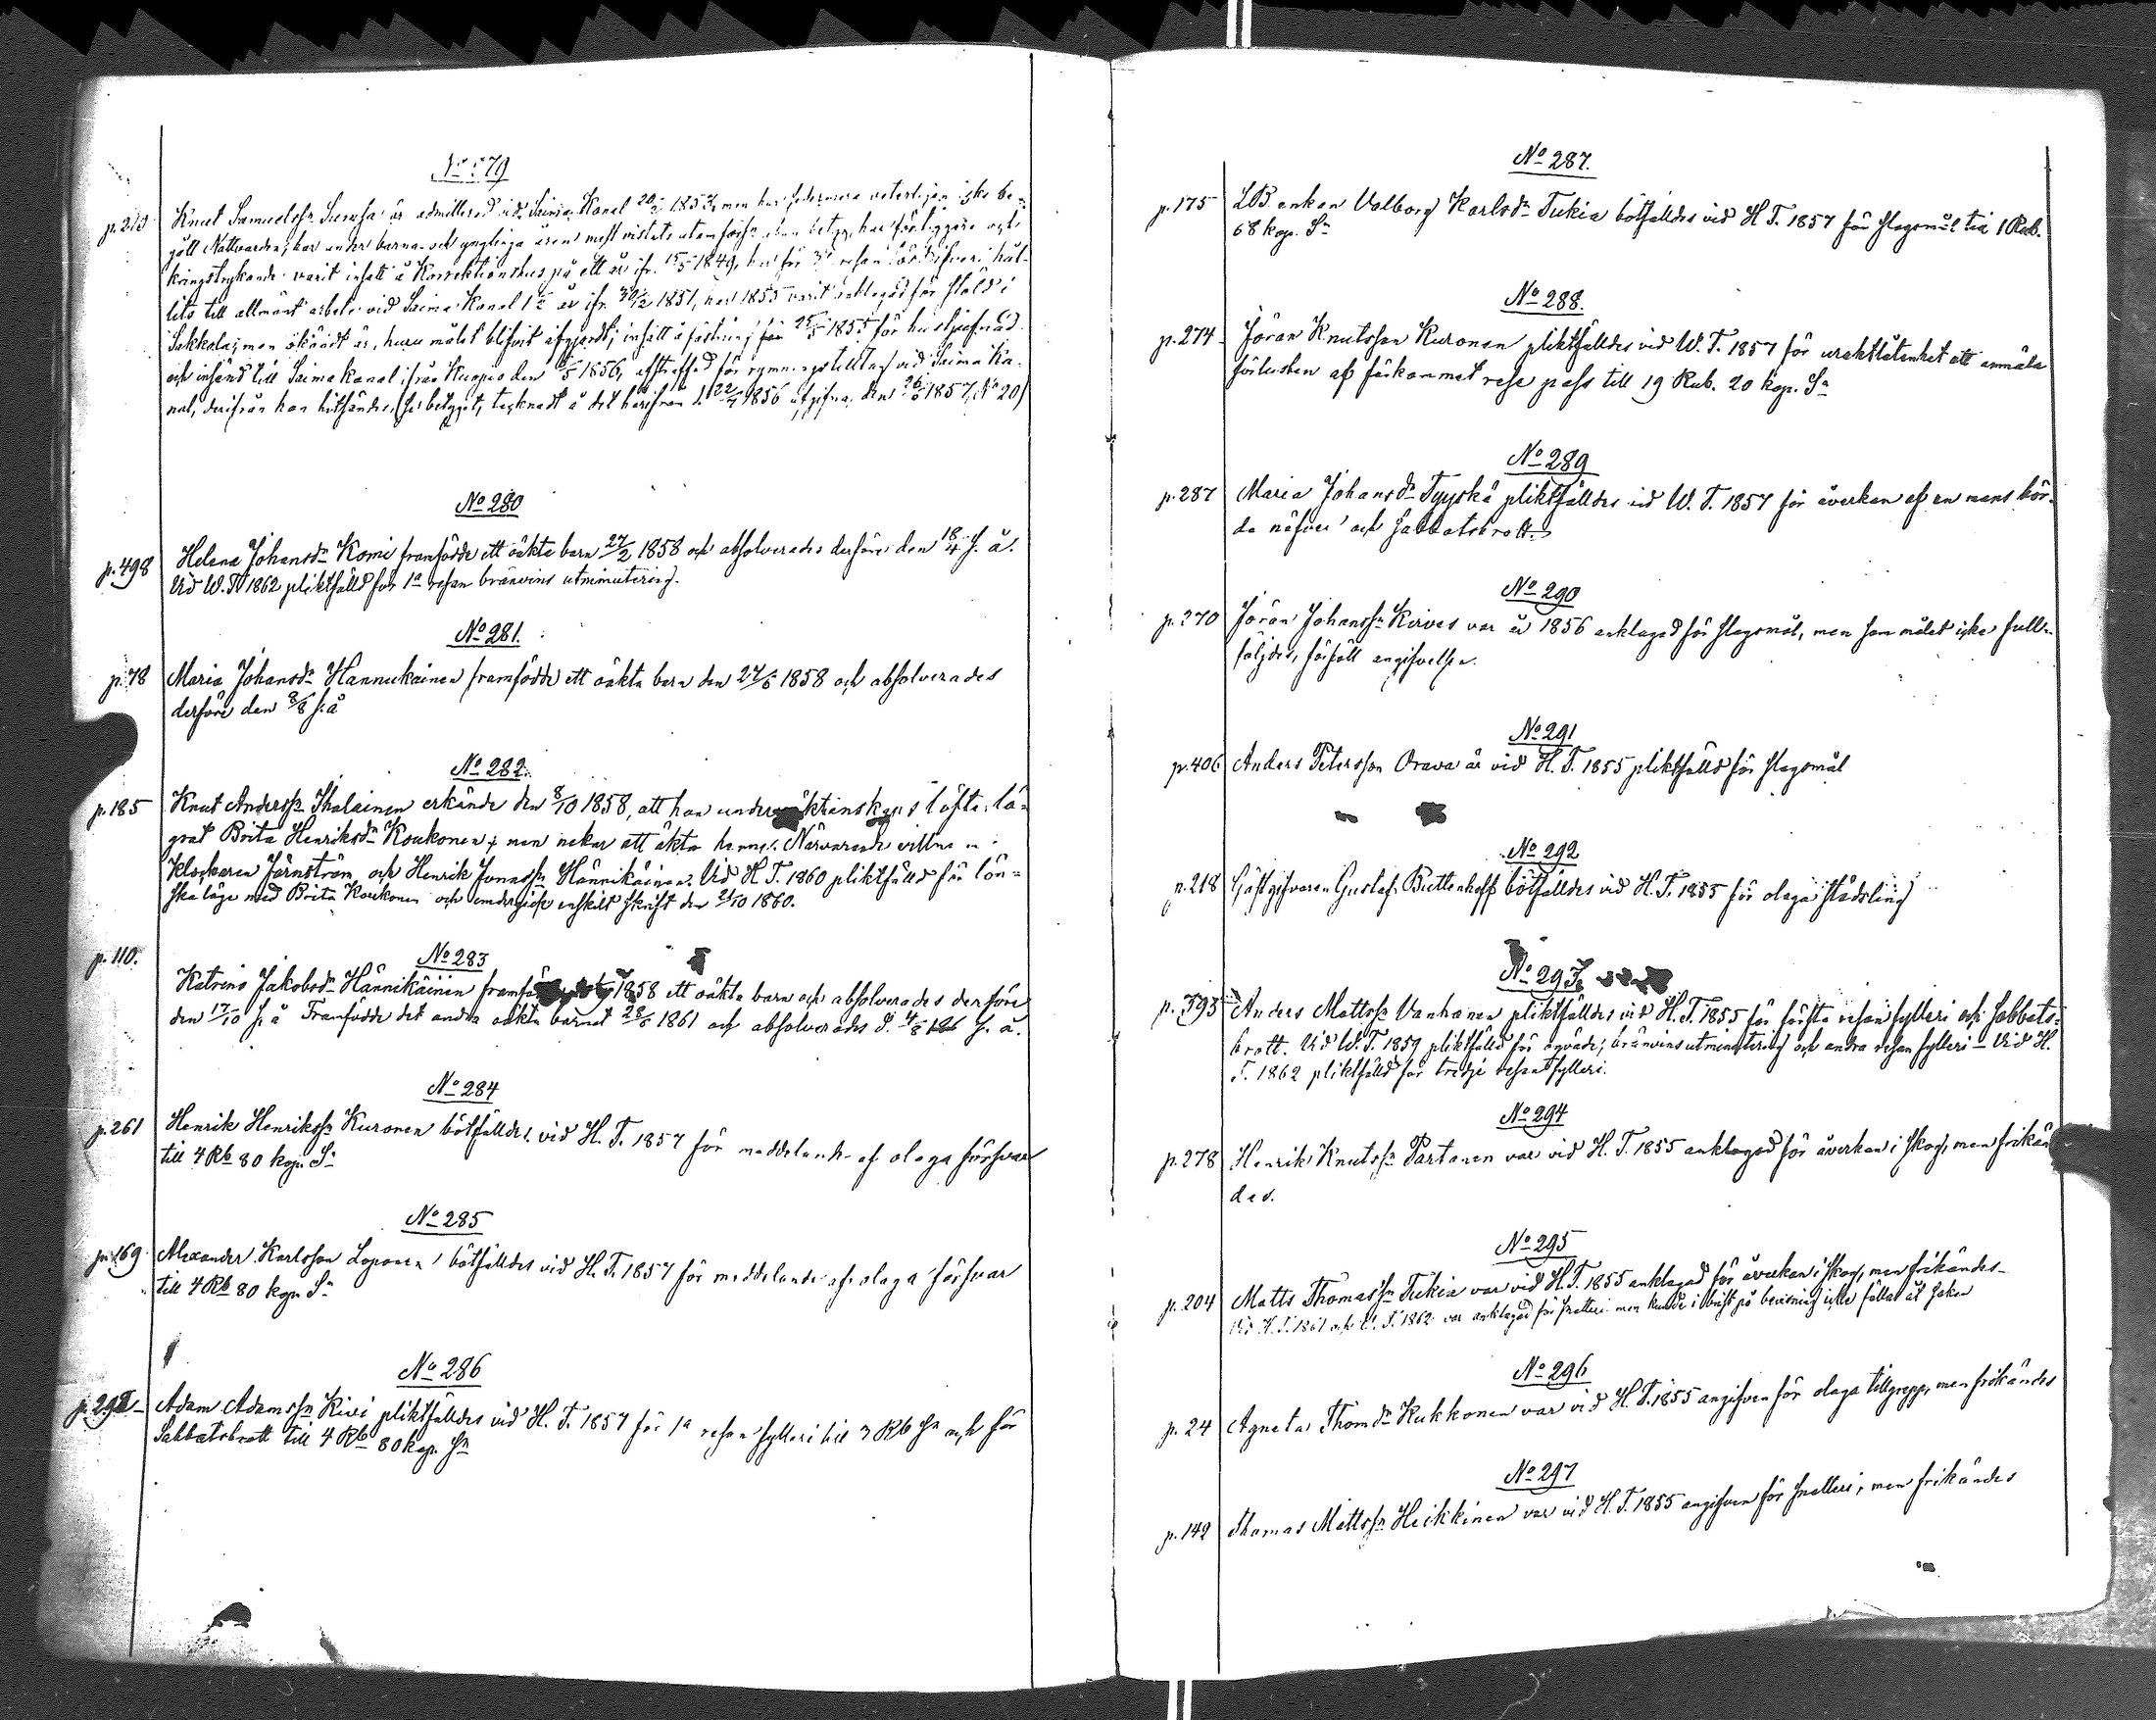 No 279
p. 213 Knut Samuelss: Suruha är admitterad vid Saima Kanal 20/2 1853, men har sedermera veterligen icke be-
gått Nattvarden; har under barna- och ynglinga åren mest vistats utom socknen utan betyg, har för liggare och
kringstrykande varit insatt å Korrektionshus på ett år ifr. 15/5 1849, har för 3e resan
lits till allmänt arbete vid Saima Kanal 1 1/2 år ifr. 30/12 1851, har 1855 varit anklagad för stöld i
Sakkola, men okändt är, huru målet blifvit afgjordt; insatt å fästning från 25/5 1855 för
och insänd till Saima kanal ifrån Kuopio den 5/5 1856, afstraffad för rymningstilltag vid Saima Ka-
nal, derifrån han hitsändes, (se betyget, tecknadt å det härifrån d. 22/4 1856 utgifna, den 26/6 1857, No 20)
No 280
p. 498 Helena Johansdr Komi framfödde ett oäkta barn 27/2 1858 och absolverades derföre den 18/4 s. å.
Vid W. T. 1862 pliktfälld för 1a resan bränvins utminutering.
No 281.
p. 78 Maria Johansdr Hannukainen framfödde ett oäkta barn den 27/5 1858 och absolverades
derföre den 8/8 s. å
No 282.
p. 185 Knut Anderss: Ihalainen erkände den 8/10 1858, att han under äktenskaps löfte lä-
grat Brita Henriksdr Koukonen, men nekar att äkta henne. Närvarande vittnen
Klockaren Järnström och Henrik Jonassn Hännikäinen. Vid H. T. 1860 pliktfälld för lön-
skaläge med Brita Koukonen och undergick enskilt skrift den 21/10 1860.
No 283
p. 110. Katrina Jakobsdr Hännikäinen 1858 ett oäkta barn och absolverades derföre
den 17/10 s. å Framfödde det andra oäkta barnet 28/5 1861 och absolverades d. 4/8 s. å.
No 284
p. 261 Henrik Henrikssn Kuronen bötfälldes vid H. T. 1857 för meddelande af olaga försvar
till 4 Rb 80 kop. Sr
No 285
p. 169 Alexander Karlsson Loponen bötfälldes vid H. T. 1857 för meddelande af olaga försvar
till 4 Rb 80 kop. Sr
No 286
p. 292 Adam Adamssn Kivi pliktfälldes vid H. T. 1857 för 1a resan fylleri till 3 Rb Sr och för
Sabbatsbrott till 4 Rb 80 kop. Sr
No 287.
p. 175 LB. enkan Valborg Karlsdr Tukia bötfälldes vid H T. 1857 för slagsmål till 1 Rub.
68 kop. Sr
No 288.
p. 274 Jöran Knutsson Kuronen pliktfälldes vid W. T. 1857 för uraktlåtenhet att anmäla
förlusten af förkommet rese pass till 19 Rub. 20 kop. Sr
No 289
p. 287 Maria Johansdr Tyyskä pliktfälldes vid W. T. 1857 för åverkan af en mans bör-
da näfver och sabbatsbrott.
No 290
p. 270 Jöran Johanssn Kirves var år 1856 anklagad för slagsmål, men som målet icke full-
följdes, förföll angifvelsen.
No 291
p. 406 Anders Petersson Orava är vid H. T. 1855 pliktfälld för slagsmål
No 292
p. 218 Gästgifvaren Gustaf Buttenhoff bötfälldes vid H. T. 1855 för olaga städsling
No 293
p. 393 Anders Mattssn Vanhanen pliktfälldes vid H. T. 1855 för första resan fylleri och sabbats-
brott. Vid W. T. 1859 pliktfälld för oqväde, bränvinsutminutering och andra resan fylleri - Vid H.
T. 1862 pliktfälld för tredje resan fylleri.
No 294
p. 278 Henrik Knutssn Partanen var vid H. T. 1855 anklagad för åverkan i skog, men frikän
des.
No 295
p. 204 Matts Thomassn Tukia var vid H. T. 1855 anklagad för åverkan i skog, men frikändes-
Vid H. T. 1861 och V. T. 1862 var anklagad för snatteri men kunde i brist på bevisning icke fällas åt saken
No 296
p. 24 Agneta Thomdr Kukkonen var vid H. T. 1855 angifven för olaga tillgrepp, men frikändes
No 297
p. 142 Thomas Mattssn Heikkinen var vid H. T. 1855 angifven för snatteri, men frikändes